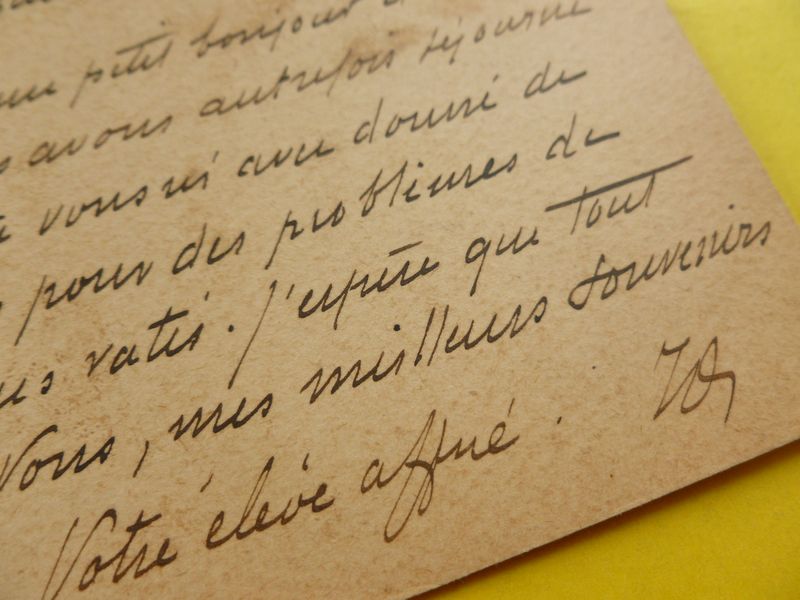 petit bonjour
avons autrefois séjourné
donné de
pour des problèmes de
ratés. J'espère que tout
Vous, mes meilleurs souvenirs
Votre élève affné.